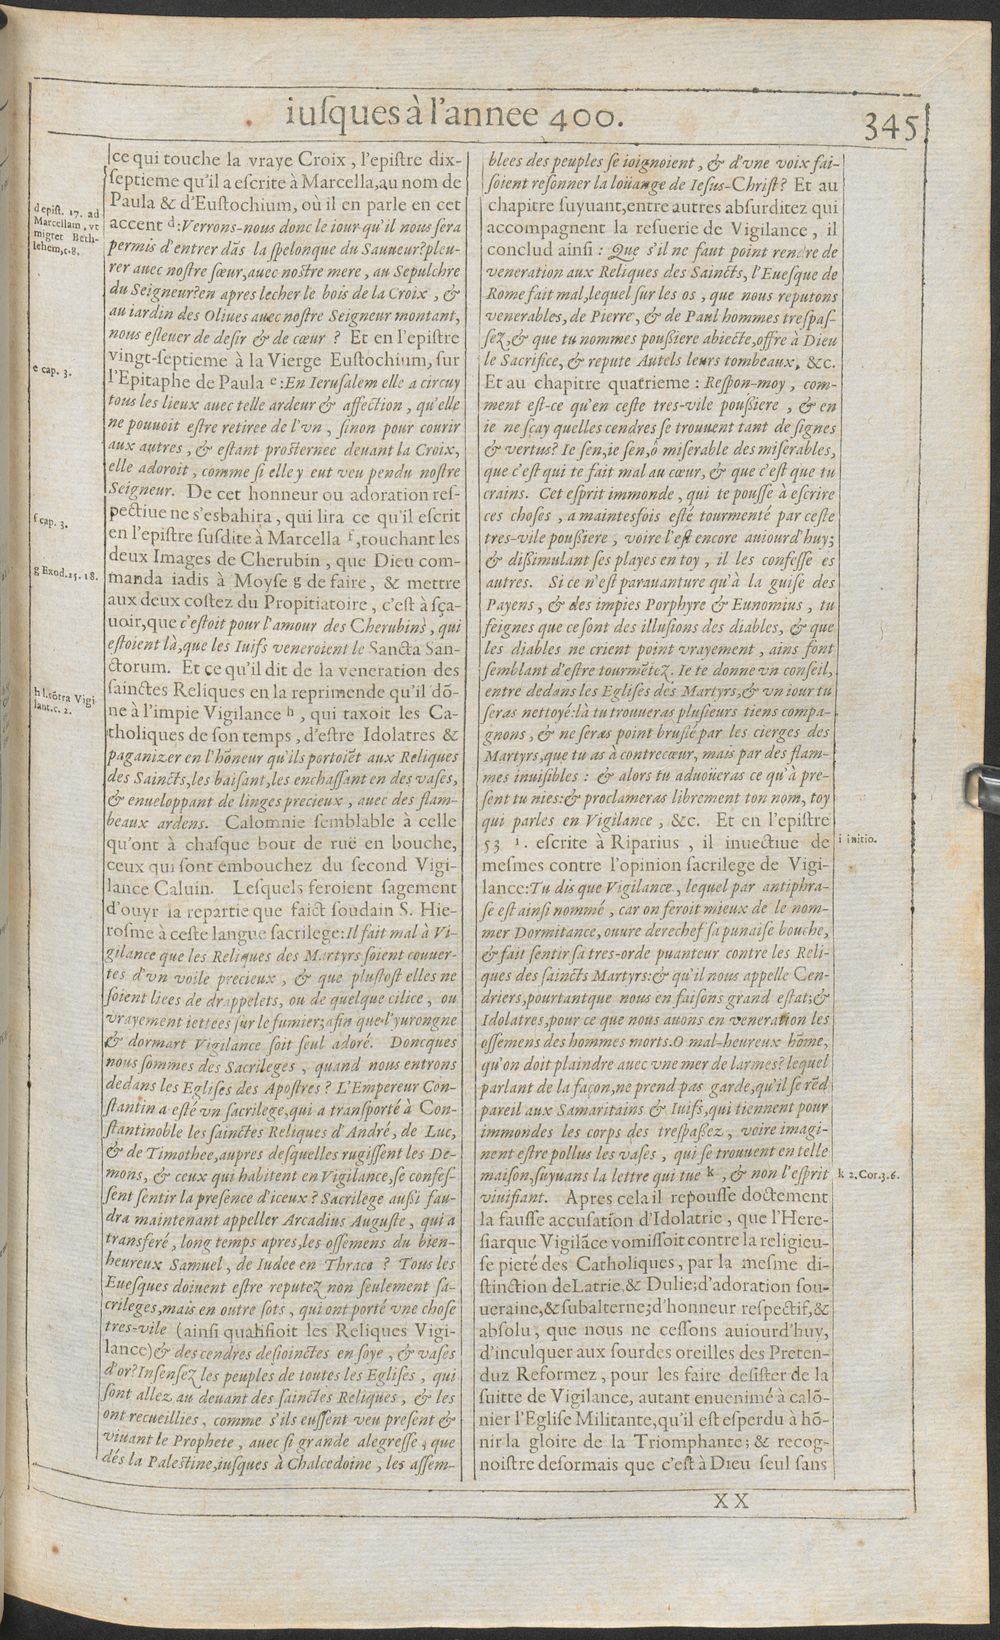 iuſques à l'annee 400.
345
ce qui touche la vraye Croix, l'epiſtre dix-
ſeptieme qu'il a eſcrite à Marcella, au nom de
Paula & d'Euſtochium, où il en parle en cet
accent d: Verrons-nous donc le iour qu'il nous ſera
permis d'entrer dãs la ſpelonque du Sauueur? pleu-
rer auec noſtre ſœur, auec noſtre mere, au Sepulchre
du Seigneur? en apres lecher le bois de la Croix, &
au iardin des Oliues auec noſtre Seigneur montant,
nous eſleuer de deſir & de cœur? Et en l'epiſtre
vingt-ſeptieme à la Vierge Euſtochium, ſur
l'Epitaphe de Paula e: En Ieruſalem elle a circuy
tous les lieux auec telle ardeur & affection, qu'elle
ne pouuoit eſtre retiree de l'vn, ſinon pour courir
aux autres, & eſtant proſternee deuant la Croix,
elle adoroit, comme ſi elle y eut veu pendu noſtre
Seigneur. De cet honneur ou adoration reſ-
pectiue ne s'esbahira, qui lira ce qu'il eſcrit
en l'epiſtre ſuſdite à Marcella f, touchant les
deux Images de Cherubin, que Dieu com-
manda iadis à Moyſe g de faire, & mettre
aux deux coſtez du Propitiatoire, c'eſt à ſça-
uoir, que c'eſtoit pour l'amour des Cherubins, qui
eſtoient là, que les Iuifs veneroient le Sancta San-
ctorum. Et ce qu'il dit de la veneration des
ſainctes Reliques en la reprimende qu'il dõ-
ne à l'impie Vigilance h, qui taxoit les Ca-
tholiques de ſon temps, d'eſtre Idolatres &
paganizer en l'hõneur qu'ils portoiẽt aux Reliques
des Saincts, les baiſant, les enchaſſant en des vaſes,
& enueloppant de linges precieux, auec des flam-
beaux ardens. Calomnie ſemblable à celle
qu'ont à chaſque bout de ruë en bouche,
ceux qui ſont embouchez du ſecond Vigi-
lance Caluin. Leſquels feroient ſagement
d'ouyr la repartie que faict ſoudain S. Hie-
roſme à ceſte langue ſacrilege: Il fait mal à Vi-
gilance que les Reliques des Martyrs ſoient couuer-
tes d'vn voile precieux, & que pluſtoſt elles ne
ſoient liees de drappelets, ou de quelque cilice, ou
vrayement iettées ſur le fumier; afin que l'yurongne
& dormart Vigilance ſoit ſeul adoré. Doncques
nous ſommes des Sacrileges, quand nous entrons
dedans les Egliſes des Apoſtres? L'Empereur Con-
ſtantin a eſté vn ſacrilege, qui a tranſporté à Con-
ſtantinoble les ſainctes Reliques d'André, de Luc,
& de Timothee, aupres deſquelles rugiſſent les De-
mons, & ceux qui habitent en Vigilance, ſe confeſ-
ſent ſentir la preſence d'iceux? Sacrilege auſsi fau-
dra maintenant appeller Arcadius Auguſte, qui a
transferé, long temps apres, les oſſemens du bien-
heureux Samuel, de Iudee en Thrace? Tous les
Eueſques doiuent eſtre reputez non ſeulement ſa-
crileges, mais en outre ſots, qui ont porté vne choſe
tres-vile (ainſi qualifioit les Reliques Vigi-
lance) & des cendres deſioinctes en ſoye, & vaſes
d'or? Inſenſez les peuples de toutes les Egliſes, qui
ſont allez au deuant des ſainctes Reliques, & les
ont recueillies, comme s'ils euſſent veu preſent &
viuant le Prophete, auec ſi grande alegreſſe, que
dés la Paleſtine, iuſques à Chalcedoine, les aſſem-
d epiſt. 17. ad
Marcellam, vt
migret Beth-
lehem, c. 8.
e cap. 3.
f cap. 3.
g Exod. 25. 18.
h l. cõtra Vigi
lant. c. 2.
blees des peuples ſe ioignoient, & d'vne voix fai-
ſoient reſonner la loüange de Ieſus-Chriſt? Et au
chapitre ſuyuant, entre autres abſurditez qui
accompagnent la reſuerie de Vigilance, il
conclud ainſi: Que s'il ne faut point rendre de
veneration aux Reliques des Saincts, l'Eueſque de
Rome fait mal, lequel ſur les os, que nous reputons
venerables, de Pierre, & de Paul hommes treſpaſ-
ſez, & que tu nommes pouſsiere abiecte, offre à Dieu
le Sacrifice, & repute Autels leurs tombeaux, &c.
Et au chapitre quatrieme: Reſpon-moy, com-
ment eſt-ce qu'en ceſte tres-vile pouſsiere, & en
ie ne ſçay quelles cendres ſe trouuent tant de ſignes
& vertus? Ie ſen, ie ſen, ô miſerable des miſerables,
que c'eſt qui te fait mal au cœur, & que c'eſt que tu
crains. Cet eſprit immonde, qui te pouſſe à eſcrire
ces choſes, a maintesfois eſté tourmenté par ceſte
tres-vile pouſsiere, voire l'eſt encore auiourd'huy;
& diſsimulant ſes playes en toy, il les confeſſe es
autres. Si ce n'eſt parauanture qu'à la guiſe des
Payens, & des impies Porphyre & Eunomius, tu
feignes que ce ſont des illuſions des diables, & que
les diables ne crient point vrayement, ains font
ſemblant d'eſtre tourmẽtez. Ie te donne vn conſeil,
entre dedans les Egliſes des Martyrs, & vn iour tu
ſeras nettoyé: là tu trouueras pluſieurs tiens compa-
gnons, & ne ſeras point bruſlé par les cierges des
Martyrs, que tu as à contrecœur, mais par des flam-
mes inuiſibles: & alors tu aduoüeras ce qu'à pre-
ſent tu nies: & proclameras librement ton nom, toy
qui parles en Vigilance, &c. Et en l'epiſtre
53 i. eſcrite à Riparius, il inuectiue de
meſmes contre l'opinion ſacrilege de Vigi-
lance: Tu dis que Vigilance, lequel par antiphra-
ſe eſt ainſi nommé, car on feroit mieux de le nom-
mer Dormitance, ouure derechef ſa punaiſe bouche,
& fait ſentir ſa tres-orde puanteur contre les Reli-
ques des ſaincts Martyrs: & qu'il nous appelle Cen-
driers, pourtantque nous en faiſons grand eſtat; &
Idolatres, pour ce que nous auons en veneration les
oſſemens des hommes morts. O mal-heureux hõme,
qu'on doit plaindre auec vne mer de larmes? lequel
parlant de la façon, ne prend pas garde, qu'il ſe rẽd
pareil aux Samaritains & Iuifs, qui tiennent pour
immondes les corps des treſpaſſez, voire imagi-
nent eſtre pollus les vaſes, qui ſe trouuent en telle
maiſon, ſuyuans la lettre qui tuë k, & non l'eſprit
viuifiant. Apres cela il repouſſe doctement
la fauſſe accuſation d'Idolatrie, que l'Here-
ſiarque Vigilãce vomiſſoit contre la religieu-
ſe pieté des Catholiques, par la meſme di-
ſtinction de Latrie & Dulie; d'adoration ſou-
ueraine, & ſubalterne; d'honneur reſpectif, &
abſolu, que nous ne ceſſons auiourd'huy,
d'inculquer aux ſourdes oreilles des Preten-
duz Reformez, pour les faire deſiſter de la
ſuitte de Vigilance, autant enuenimé à calõ-
nier l'Egliſe Militante, qu'il eſt eſperdu à hõ-
nir la gloire de la Triomphante; & recog-
noiſtre deſormais que c'eſt à Dieu ſeul ſans
i initio.
k 2. Cor. 3. 6.
XX